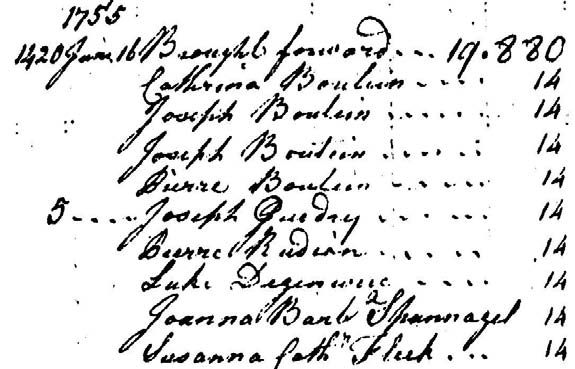 1755
1420 June 16 Brought forward ... 19.880
Cathrina Boutin ..... 14
Joseph Boutin ...... 14
Joseph Boutin ...... 14
Pierre Boutin ...... 14
5 .... Joseph Guedry ...... 14
Pierre ..... 14
Luke ..... 14
Joanna Barb.a Spannagel 14
Susanna Cath.n Fleck ... 14